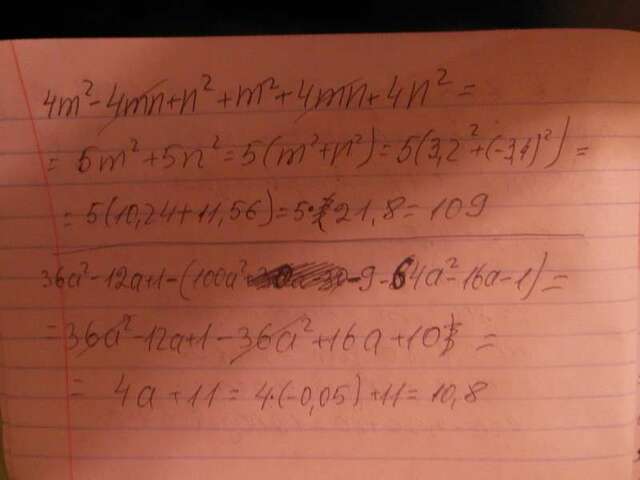 4m² - 4mn + n² + m² + 4mn + 4n² =
= 5m² + 5n² = 5(m² + n²) = 5(3,2² + (-3,4)²) =
= 5(10,24 + 11,56) = 5 · 21,8 = 109
36a² - 12a + 1 - (100a² - 9 - 64a² - 16a - 1) =
= 36a² - 12a + 1 - 36a² + 16a + 10 =
= 4a + 11 = 4 · (-0,05) + 11 = 10,8